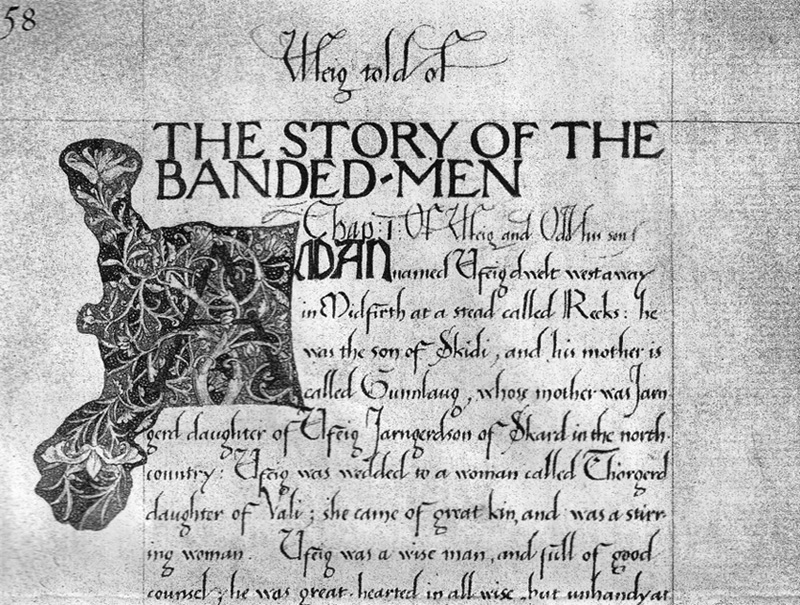 58
Ufeig told of
THE STORY OF THE
BANDED-MEN
Chap: I: Of Ufeig and Odd his son
A MAN named Ufeig dwelt west away
in Midfirth at a stead called Reeks: he
was the son of Skidi, and his mother is
called Gunnlaug, whose mother was Jarn
gerd daughter of Ufeig Jarngerdson of Skard in the north
country: Ufeig was wedded to a woman called Thorgerd
daughter of Vali; she came of great kin, and was a stirr-
ing woman. Ufeig was a wise man, and full of good
counsel; he was great-hearted in all wise, but unhandy at